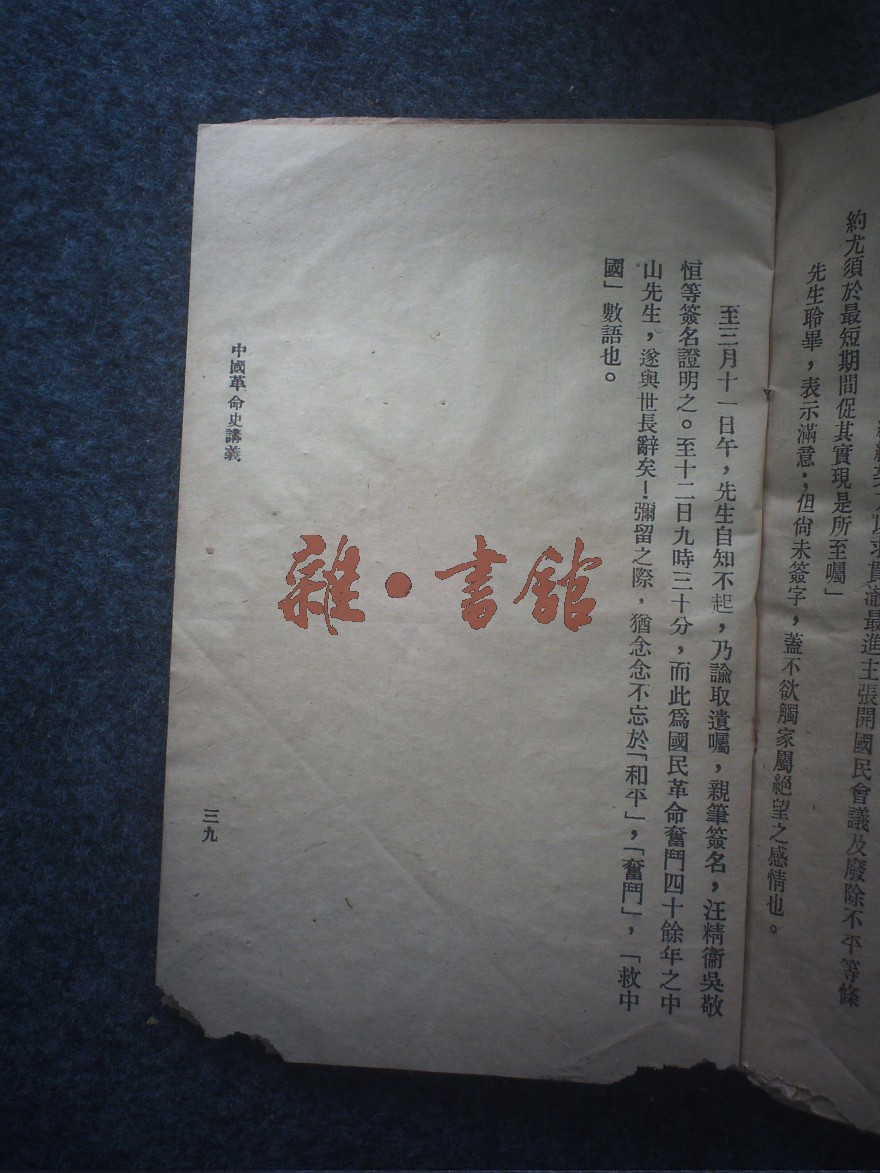 最進主張開國民會議及廢除不平等條
約尤須於最短期間促其實現是所至囑」
先生聆畢，表示滿意；但尙未簽字，蓋不欲觸家屬絕望之感情也。
至三月十一日午，先生自知不起，乃諭取遺囑，親筆簽名，汪精衞吳敬
恒等簽名證明之。至十二日九時三十分，而此爲國民革命奮鬥四十餘年之中
山先生，遂與世長辭矣！彌留之際，猶念念不忘於「和平」，「奮鬥」，「救中
國」數語也。
中國革命史講義
三九
雜・書館